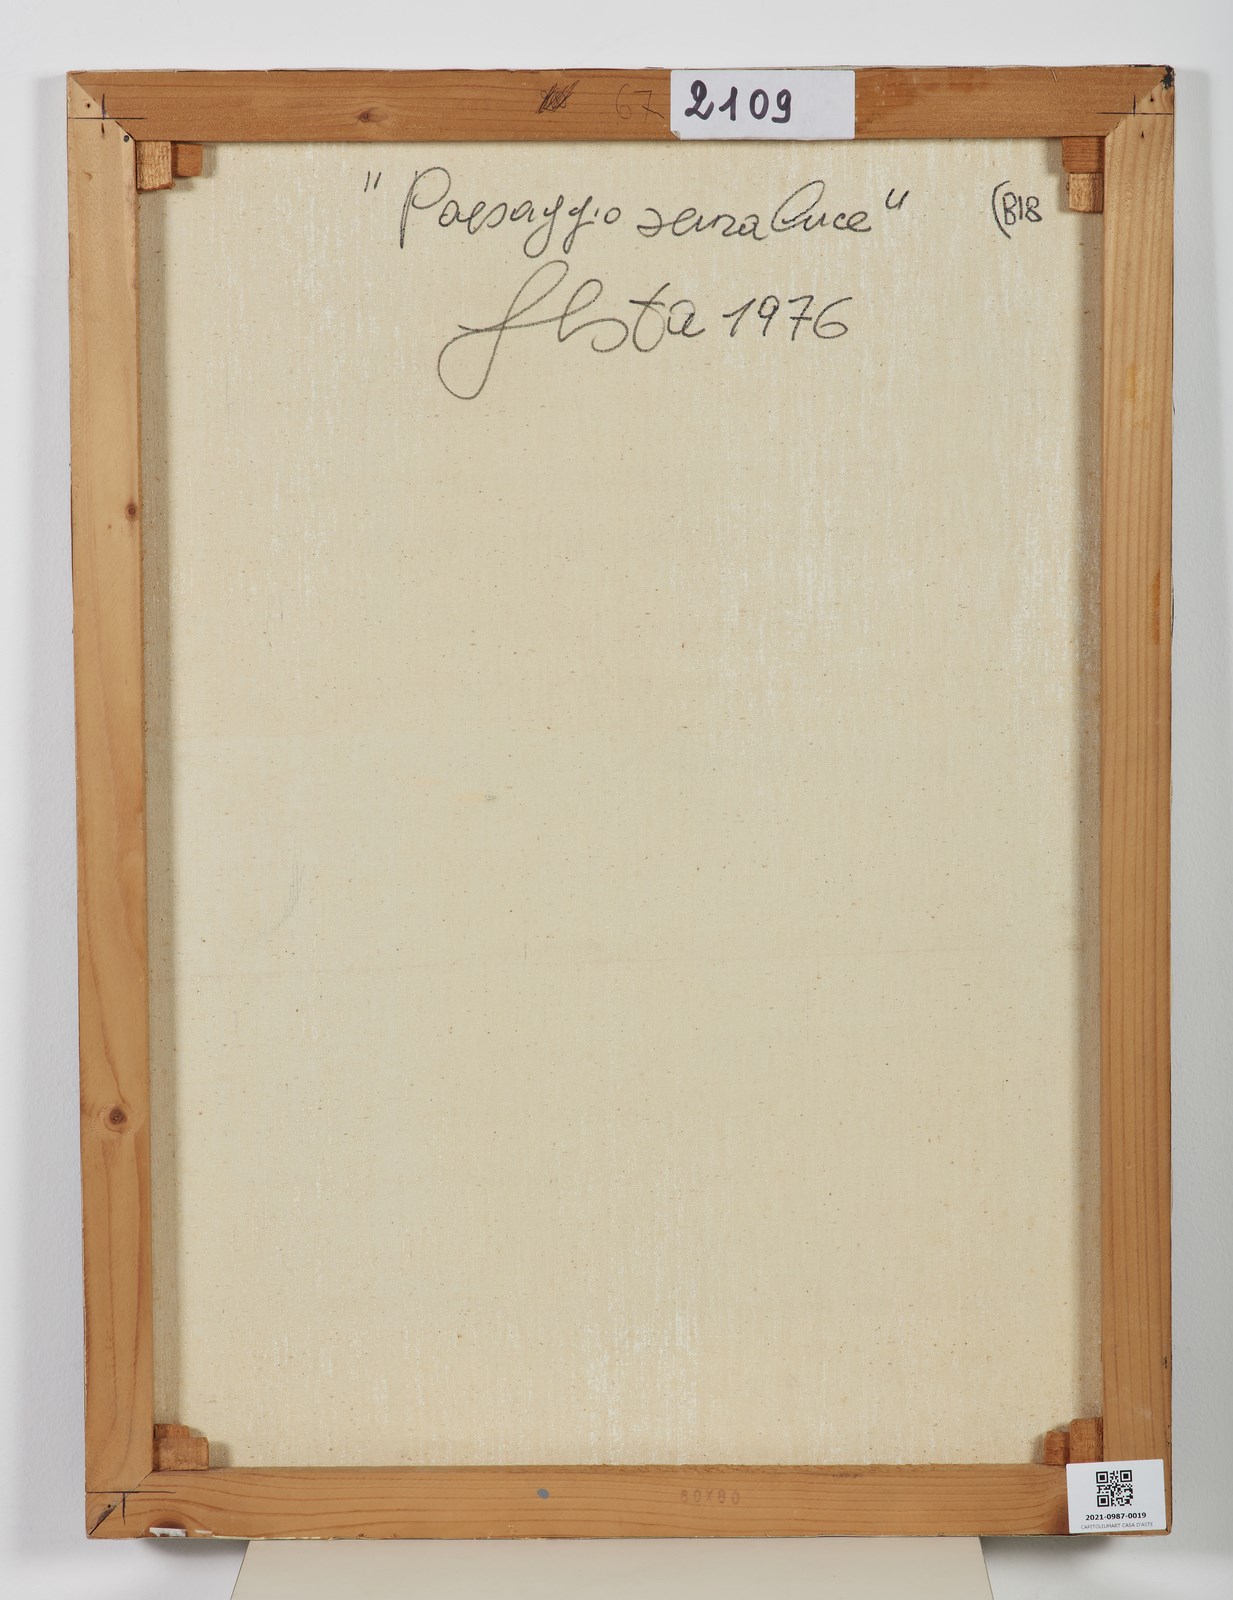 67 2109
"Paesaggio senza luce" (B18
Festa 1976
60X80
2021-0987-0019
CAPITOLIUMART CASA D'ASTE